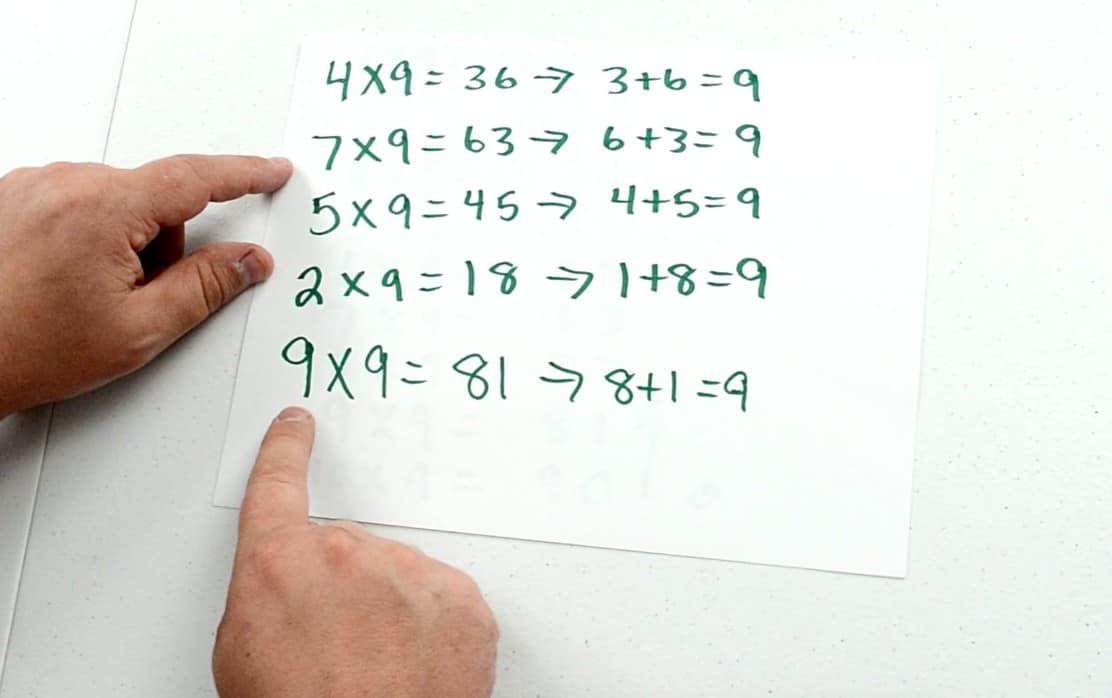 4×9=36→ 3+6=9
7×9=63→ 6+3=9
5×9=45→ 4+5=9
2×9=18→1+8=9
9×9=81→8+1=9